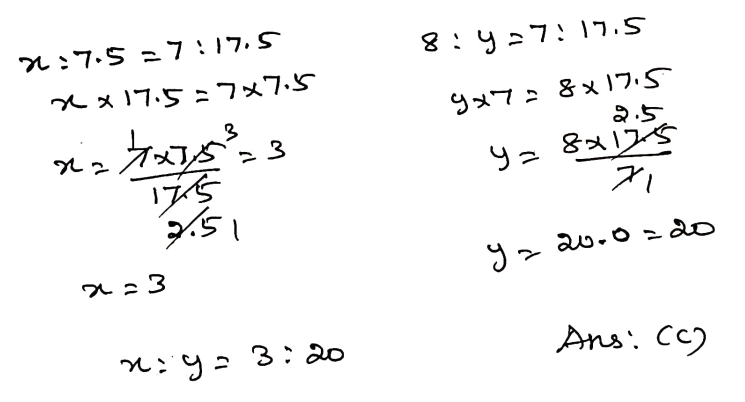 x : 7.5 = 7 : 17.5
x × 17.5 = 7 × 7.5
x = 7 × 7.5 / 17.5 = 3
1 3
2.5 1
x = 3
x : y = 3 : 20
8 : y = 7 : 17.5
y × 7 = 8 × 17.5
2.5
y = 8 × 17.5 / 7
1
y = 20.0 = 20
Ans: (C)